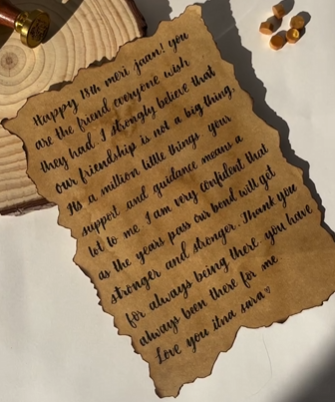 Happy 18th meri jaan! you
are the friend everyone wish
they had. I strongly believe that
our friendship is not a big thing,
Its a million little things your
support and guidance means a
lot to me. I am very confident that
as the years pass our bond will get
stronger and stronger. Thank you
for always being there. you have
always been there for me
Love you itna sara♡